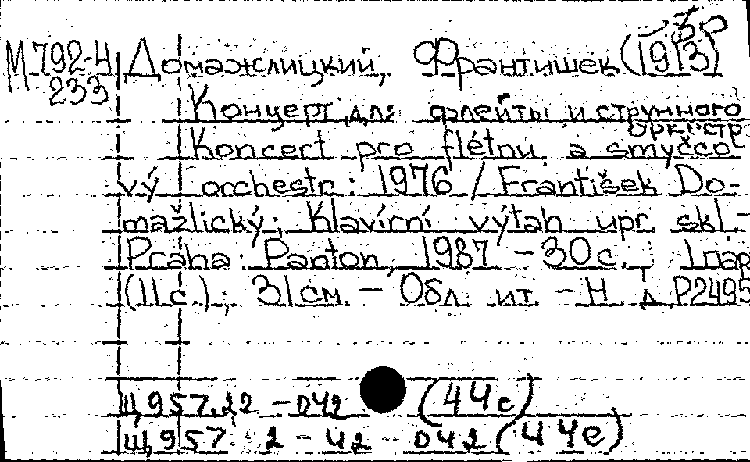 М 792-Н
233
Домажлицкий, Франтишек (1913)
Концерт для флейты и струнного
оркестр
Koncert pro flétnu a smyčco-
vý orchestr: 1976 / František Do-
mažlický; Klavírní výtah upr. skl. -
Praha: Panton, 1987. - 30 с.
(11 с.); 31 см. - Обл. ит. - Н. д. Р2495
Щ957.22 - 042 (44с)
Щ957. 2 - 42 - 042 (44е)